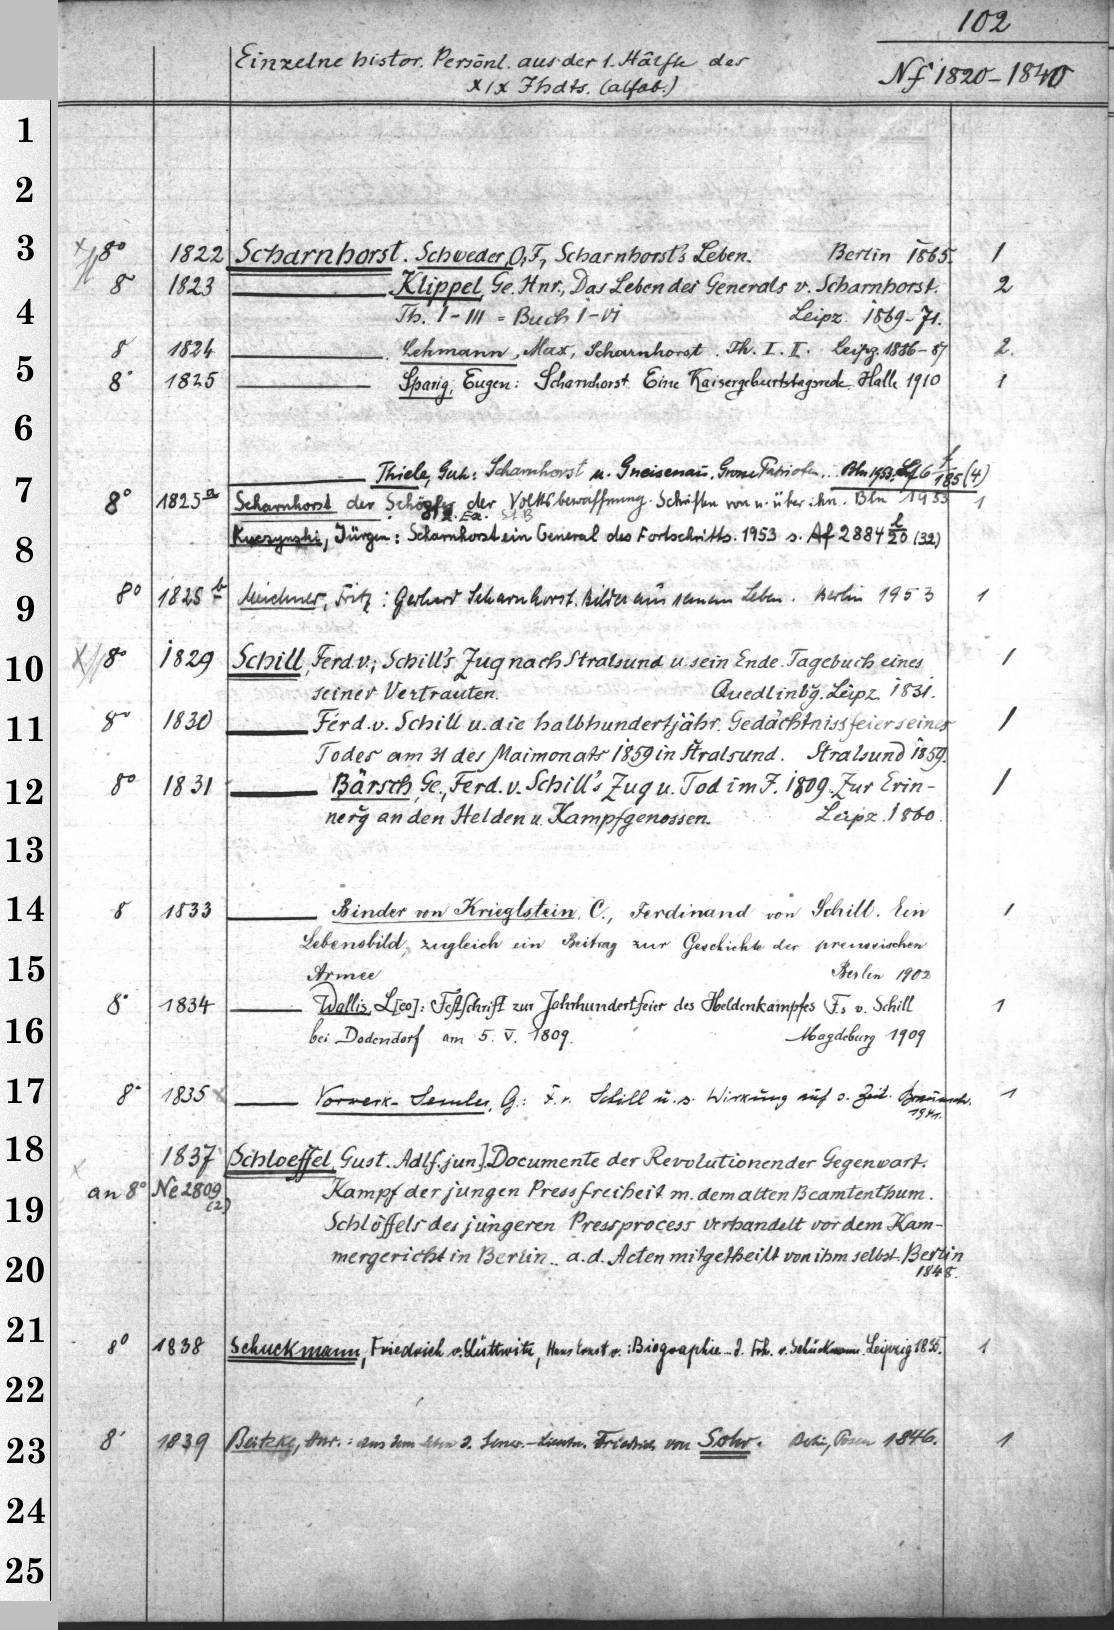 102
Einzelne histor. Persönl. aus der 1. Hälfte des
XIX Jhdts. (alfab.)
Nf 1820-1840
1
2
3
8° 1822 Scharnhorst. Schweder, O, F, Scharnhorst's Leben. Berlin 1865. 1
8° 1823 Klippel, Ge. Hnr., Das Leben des Generals v. Scharnhorst. 2
4
Th. I-III = Buch I-VI Leipz. 1869-71.
8° 1824 Lehmann, Max, Scharnhorst. Th. I. II. Leipz. 1886-87 2.
5
8° 1825 Sparig, Eugen: Scharnhorst. Eine Kaisergeburtstagsrede. Halle 1910 1
6
Thiele, Gerh.: Scharnhorst u. Gneisenau. Grosse Patrioten. Bln 1953. 185 (4)
7
8° 1825 a Scharnhorst der Schöpfer der Volksbewaffnung. Schriften von u. über ihn. Bln 1953 1
8
Kuczynski, Jürgen: Scharnhorst ein General des Fortschritts. 1953 s. Af 2884 20 (32)
9
8° 1825 b Meichner, Fritz: Gerhard Scharnhorst. Bilder aus seinem Leben. Berlin 1953 1
10
8° 1829 Schill, Ferd. v.; Schill's Zug nach Stralsund u. sein Ende. Tagebuch eines 1
seiner Vertrauten. Quedlinbg. Leipz. 1831.
11
8° 1830 Ferd. v. Schill u. die halbhundertjähr. Gedächtnissfeier seines 1
Todes am 31 des Maimonats 1859 in Stralsund. Stralsund 1859.
12
8° 1831 Bärsch, Ge., Ferd. v. Schill's Zug u. Tod im J. 1809. Zur Erin- 1
nerg an den Helden u. Kampfgenossen. Leipz. 1860.
13
14
8° 1833 Binder von Krieglstein, C., Ferdinand von Schill. Ein 1
Lebensbild, zugleich ein Beitrag zur Geschichte der preussischen
15
Armee Berlin 1902
8° 1834 Wallis, L[eo]: Festschrift zur Jahrhundertfeier des Heldenkampfes F.s v. Schill 1
16
bei Dodendorf am 5. V. 1809. Magdeburg 1909
17
8° 1835 Vorwerk-Semler, G.: F. v. Schill u. s. Wirkung auf s. Zeit. Braunschw. 1
1941.
18
1837 Schloeffel, Gust. Adlf. jun.] Documente der Revolutionen der Gegenwart.
an 8° Ne 2809 Kampf der jungen Pressfreiheit m. dem alten Beamtenthum.
(2)
19
Schlöffels des jüngeren Pressprocess verhandelt vor dem Kam-
mergericht in Berlin .. a. d. Acten mitgetheilt von ihm selbst. Berlin
20
1848.
21
8° 1838 Schuckmann, Friedrich v. Lüttwitz, Hans Ernst v.: Biographie d. Frh. v. Schuckmann. Leipzig 1835. 1
22
23
8° 1839 Beitzke, Hnr.: Aus dem Leben d. Gener.-Lieutn. Friedrich von Sohr. Berlin, Posen 1846. 1
24
25